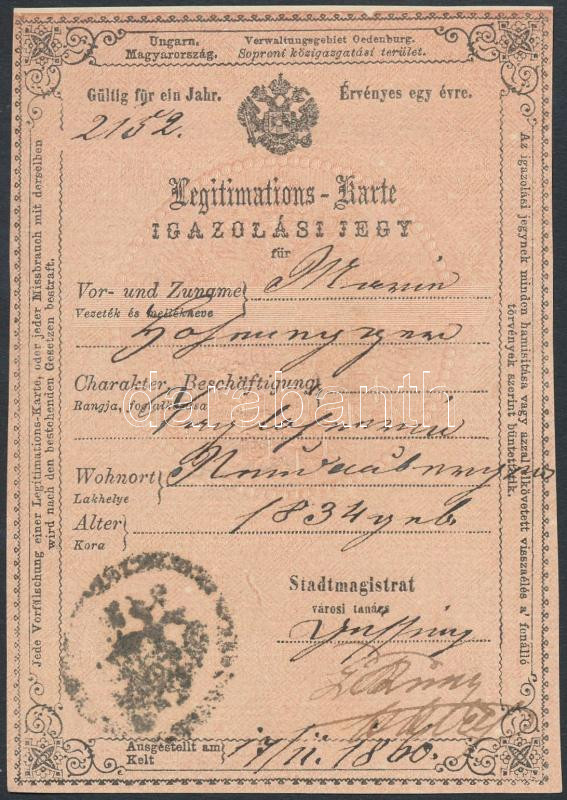 Ungarn. Verwaltungsgebiet Oedenburg.
Magyarország. Soproni közigazgatási terület.
Gültig für ein Jahr. Érvényes egy évre.
2152.
Legitimations-Karte
IGAZOLÁSI JEGY
für
Vor- und Zuname Marie
Vezeték és mellékneve
Charakter, Beschäftigung
Rangja, foglalkozása
Wohnort
Lakhelye
Alter 1834 geb
Kora
Stadtmagistrat
városi tanács
Ausgestellt am 17/11. 1860.
Kelt
Jede Verfälschung einer Legitimations-Karte, oder jeder Missbrauch mit derselben
wird nach den bestehenden Gesetzen bestraft.
Az igazolási jegynek minden hamisitása vagy azzal elkövetett visszaélés a' fonálló
törvények szerint büntettetik.
darabanth